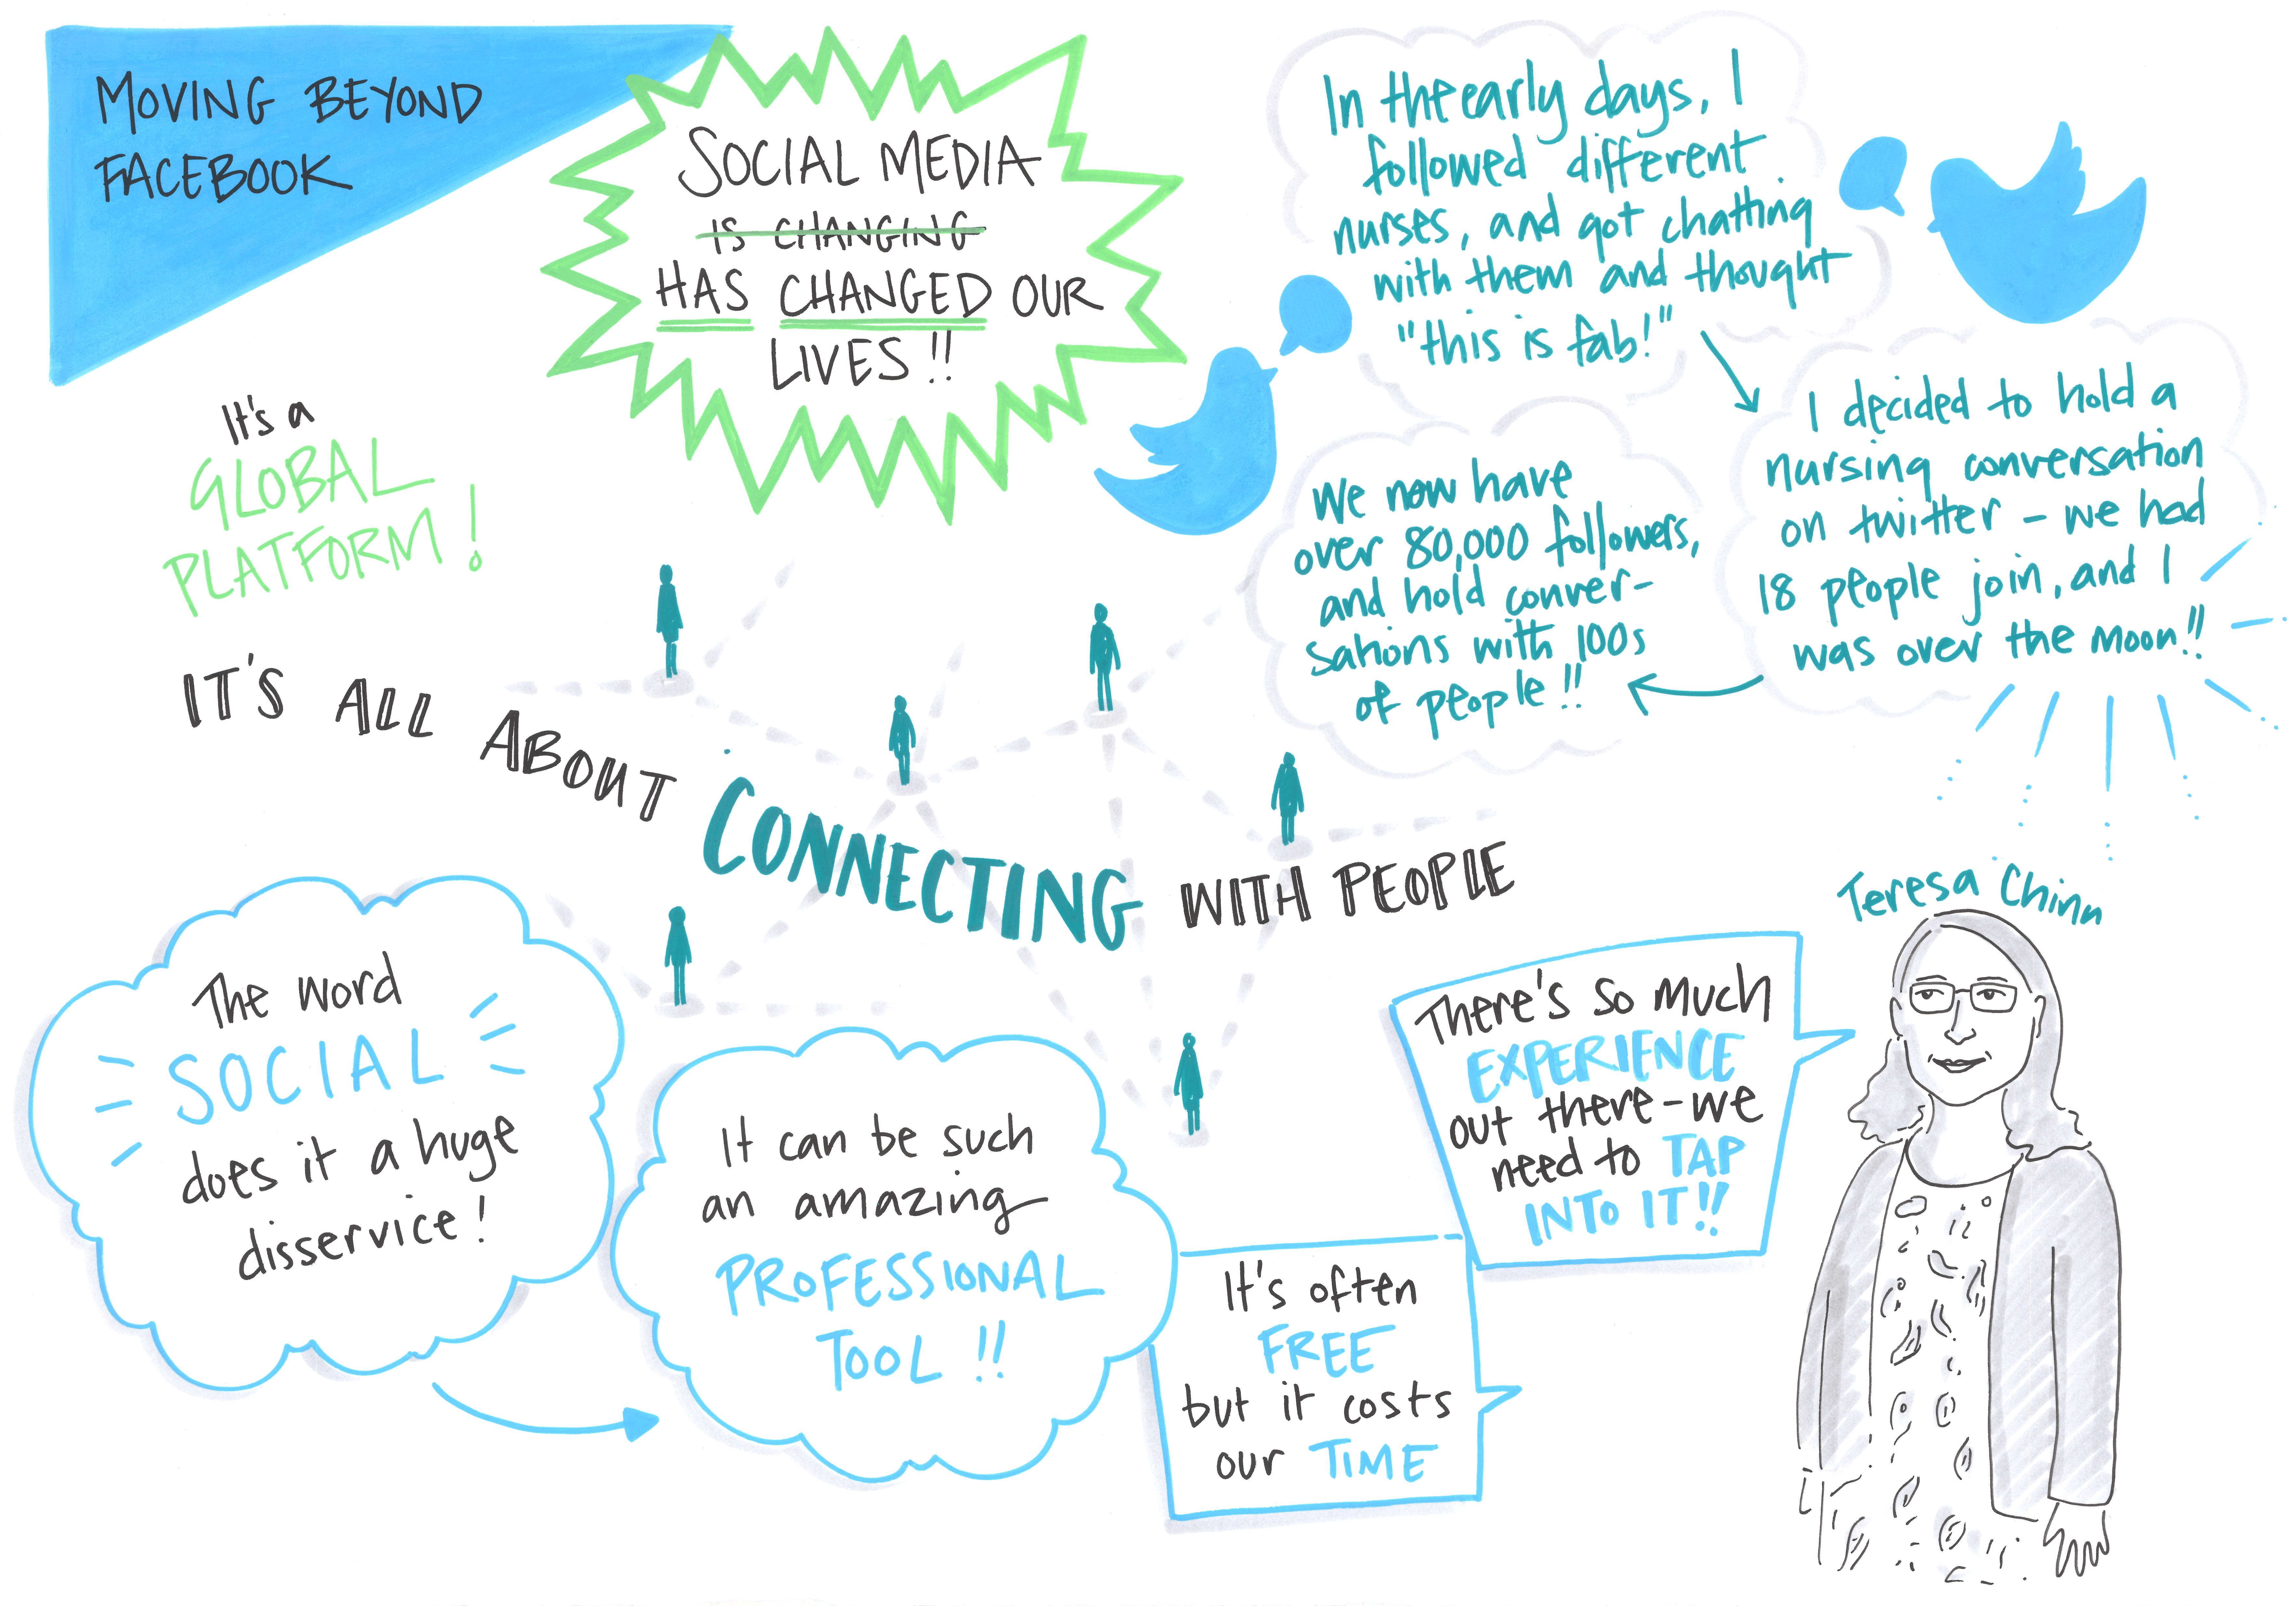 MOVING BEYOND
FACEBOOK
SOCIAL MEDIA
IS CHANGING
HAS CHANGED OUR
LIVES!!
In the early days, I
followed different
nurses, and got chatting
with them and thought
"this is fab!"
I decided to hold a
nursing conversation
on twitter - we had
18 people join, and I
was over the moon!!
We now have
over 80,000 followers,
and hold conver-
sations with 100s
of people!!
It's a
GLOBAL
PLATFORM!
IT'S ALL ABOUT CONNECTING WITH PEOPLE
The word
SOCIAL
does it a huge
disservice!
It can be such
an amazing
PROFESSIONAL
TOOL!!
It's often
FREE
but it costs
our TIME
There's so much
EXPERIENCE
out there - we
need to TAP
INTO IT!!
Teresa Chinn